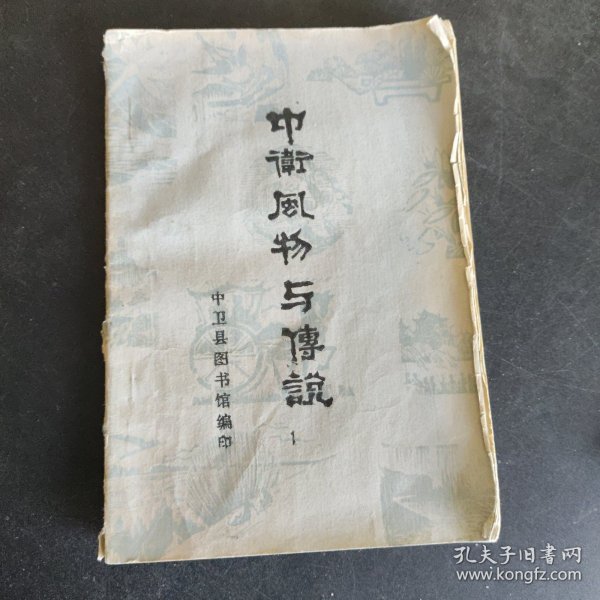 中衛風物与傳說
1
中卫县图书馆编印
孔夫子旧书网
www.kongfz.com